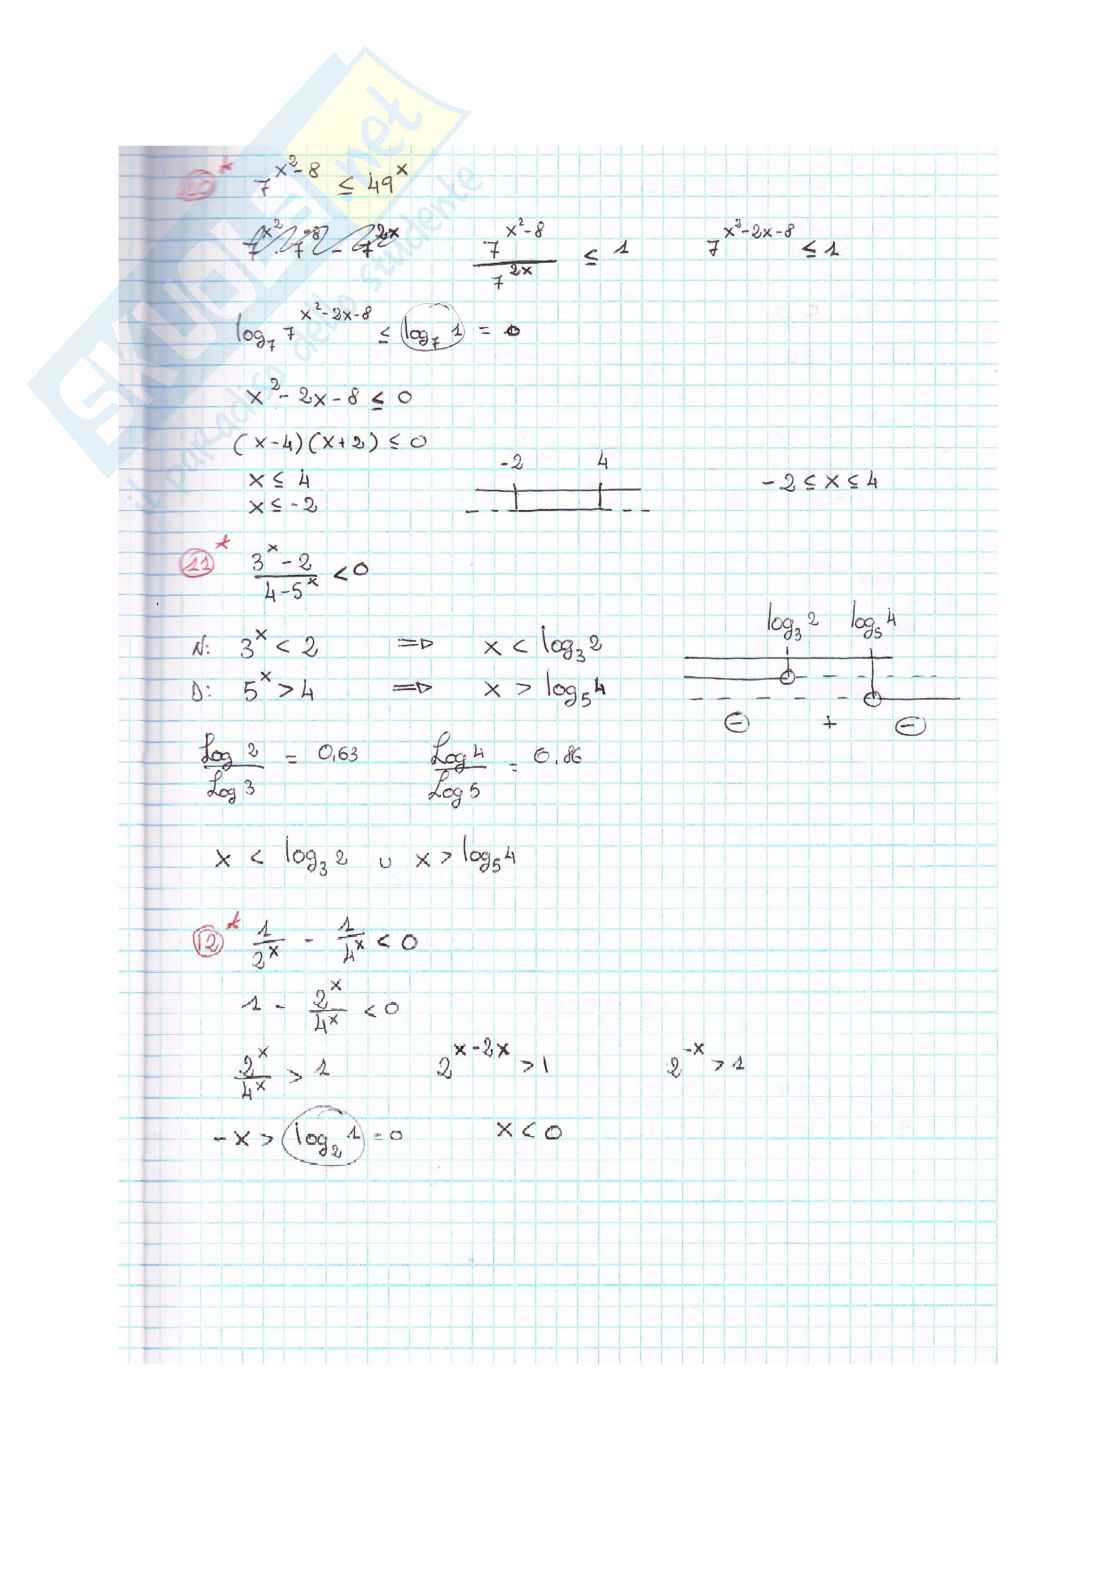 SKUOLA.net
il paradiso dello studente
10* 7^(x²-8) ≤ 49^x
7^(x²) · 7^(-8) - 7^(2x)   7^(x²-8) / 7^(2x) ≤ 1   7^(x²-2x-8) ≤ 1
log₇ 7^(x²-2x-8) ≤ log₇ 1 = 0
x² - 2x - 8 ≤ 0
(x-4)(x+2) ≤ 0
x ≤ 4   -2   4   -2 ≤ x ≤ 4
x ≤ -2
11* (3^x - 2) / (4 - 5^x) < 0
log₃ 2   log₅ 4
N: 3^x < 2 ⇒ x < log₃ 2
D: 5^x > 4 ⇒ x > log₅ 4
⊖ + ⊖
Log 2 / Log 3 = 0,63   Log 4 / Log 5 = 0.86
x < log₃ 2 ∪ x > log₅ 4
12* 1/2^x - 1/4^x < 0
1 - 2^x/4^x < 0
2^x/4^x > 1   2^(x-2x) > 1   2^(-x) > 1
-x > log₂ 1 = 0   x < 0